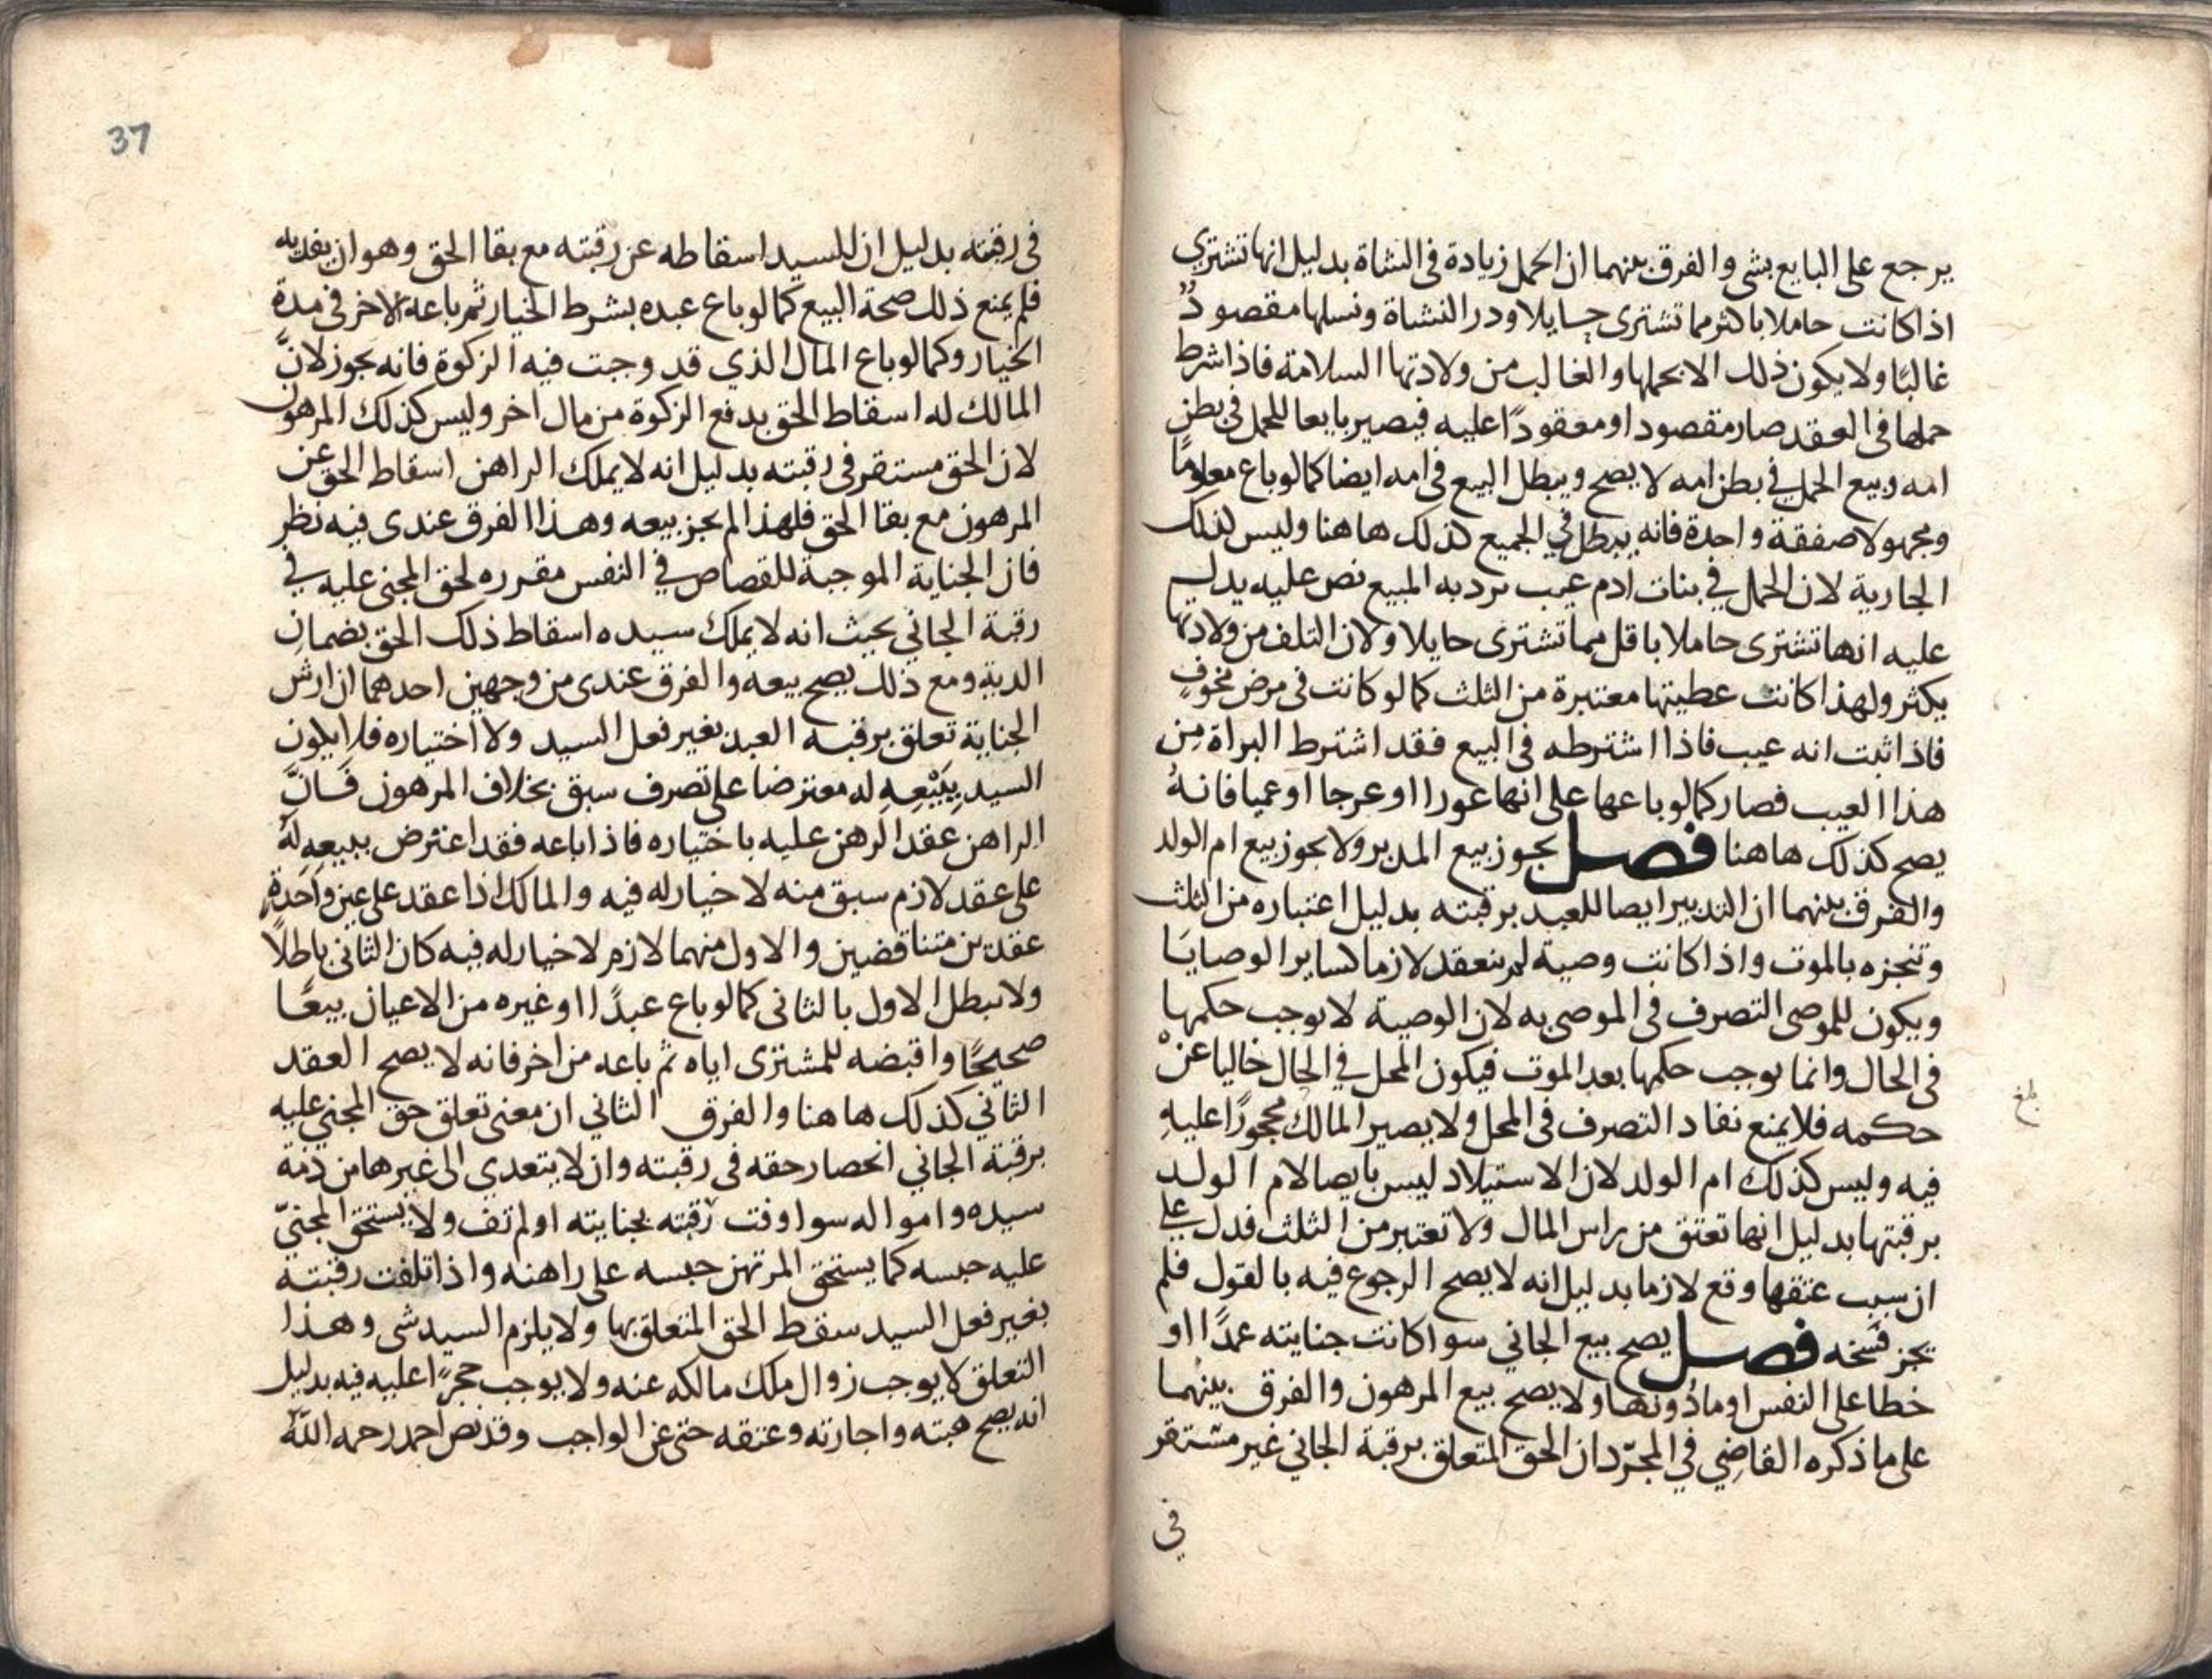 يرجع على البايع بشى والفرق بينهما ان الحمل زيادة فى الشاة بدليل انها تشتري
اذا كانت حاملا باكثر مما تشترى حايلا ودر الشاة ونسلها مقصودٌ
غالبًا ولا يكون ذلك الا بحملها والغالب من ولادتها السلامة فاذا شرط
حملها فى العقد صار مقصودا ومعقودًا عليه فيصير بايعا للحمل فى بطن
امه وبيع الحمل في بطن امه لا يصح ويبطل البيع فى امه ايضا كما لو باع معلومًا
ومجهولا صفقة واحدة فانه يبطل في الجميع كذلك هاهنا وليس كذلك
الجارية لان الحمل في بنات ادم عيب يرد به المبيع نص عليه يدل
عليه انها تشترى حاملا باقل مما تشترى حايلا ولان التلف من ولادتها
يكثر ولهذا كانت عطيتها معتبرة من الثلث كما لو كانت فى مرض مخوفٍ
فاذا ثبت انه عيب فاذا اشترطه فى البيع فقد اشترط البراة من
هذا العيب فصار كما لو باعها على انها عورا او عرجا او عميا فانهُ
يصح كذلك هاهنا فصل يجوز بيع المدبر ولا يجوز بيع ام الولد
والفرق بينهما ان التدبير ايصا للعبد برقبته بدليل اعتباره من الثلث
وتنجزه بالموت واذا كانت وصية لم ينعقد لازما كساير الوصايا
ويكون للموصى التصرف فى الموصى به لان الوصية لا يوجب حكمها
فى الحال وانما يوجب حكمها بعد الموت فيكون المحل في الحال خاليا عنْ
حكمه فلا يمنع نفاد التصرف فى المحل ولا يصير المالك محجورًا عليهِ
فيه وليس كذلك ام الولد لان الاستيلاد ليس بايصا لام الولد
برقبتها بدليل انها تعتق من راس المال ولا تعتبر من الثلث فدل على
ان سبب عتقها وقع لازما بدليل انه لا يصح الرجوع فيه بالقول فلم
يجز فسخه فصل يصح بيع الجاني سوا كانت جنايته عمدًا او
خطا على النفس او ما دونها ولا يصح بيع المرهون والفرق بينهما
على ما ذكره القاضِي في المجرّد ان الحق المتعلق برقبة الجاني غير مستقر
في
37
فى رقبته بدليل ان للسيد اسقاطه عن رقبته مع بقا الحق وهو ان يفديه
فلم يمنع ذلك صحة البيع كما لو باع عبده بشرط الخيار ثم باعه لاخر فى مدة
الخيار وكما لو باع المال الذي قد وجبت فيه الزكوة فانه يجوز لانَّ
المالك له اسقاط الحق بدفع الزكوة من مال اخر وليس كذلك المرهون
لان الحق مستقر فى رقبته بدليل انه لا يملك الراهن اسقاط الحق عن
المرهون مع بقا الحق فلهذا لم يجز بيعه وهذا الفرق عندى فيه نظر
فان الجناية الموجبة للقصاص في النفس مقرره لحق المجنى عليه في
رقبة الجاني بحيث انه لا يملك سيده اسقاط ذلك الحق بضمان
الدية ومع ذلك يصح بيعه والفرق عندى من وجهين احدهما ان ارش
الجناية تعلق برقبه العبد بغير فعل السيد ولا اختياره فلا يكون
السيد بِبَيْعِهِ له معترضا على تصرف سبق بخلاف المرهون فَانَّ
الراهن عقد الرهن عليه باختياره فاذا باعه فقد اعترض ببيعِهِ لَهُ
على عقد لازم سبق منه لا خيار له فيه والمالك اذا عقد على عين واحدةٍ
عقدين متناقضين والاول منهما لازم لا خيار له فيه كان الثانى باطلًا
ولا يبطل الاول بالثانى كما لو باع عبدًا او غيره من الاعيان بيعًا
صحيحًا واقبضه للمشترى اياه ثم باعه من اخر فانه لا يصح العقد
الثاني كذلك هاهنا والفرق الثاني ان معنى تعلق حق المجني عليه
برقبة الجاني انحصار حقه فى رقبته وان لا يتعدي الى غيرها من ذمة
سيده وامواله سوا وفت رقبته بجنايته او لم تف ولا يستحق المجنيّ
عليه حبسه كما يستحق المرتهن حبسه على راهنه واذا تلفت رقبته
بغير فعل السيد سقط الحق المتعلق بها ولا يلزم السيد شى وهذا
التعلق لا يوجب زوال ملك مالكه عنه ولا يوجب حجرًا عليه فيه بدليل
انه يصح هبته واجارته وعتقه حتى عن الواجب وقد نص احمد رحمه اللّٰه